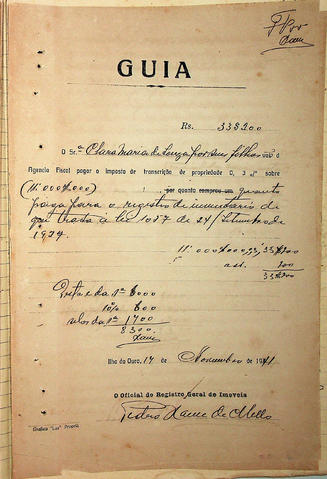 GUIA
Rs. 33$200
O Sr.ª Clara Maria de Souza por seus filhos vai á
Agencia Fiscal pagar o imposto de transcrição de propriedade 0,3 % sobre
(11:000$000) por quanto comprou um quanto
paga para o registro de inventário de
que trata a lei 1057 de 24/Setembro de
1924.
11:000$000 33$000
est. 200
33$200
Dita e da 1ª 6000
10% 600
selos da 1ª 1700
8300
Xavier
Ilha do Ouro, 17 de Novembro de 1941
O Oficial do Registro Geral de Imoveis
Pedro Xavier de Mello
Grafica "Luz" Propriá